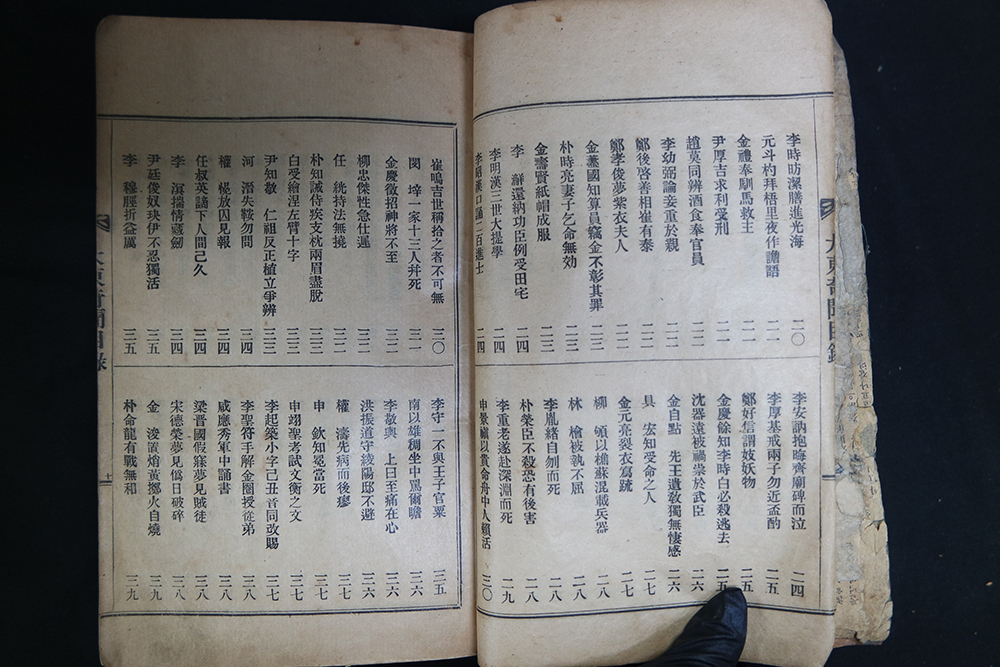 大東奇聞目錄
李時昉潔膳進光海 二〇
元斗杓拜梧里夜作譫語 二一
金禮奉馴馬救主 二一
尹厚吉求利受刑 二一
趙莫同辨酒食奉官員 二一
李幼弼論妾重於親 二二
鄭後啓善相崔有泰 二二
鄭孝俊夢紫衣夫人 二二
金藎國知算員竊金不彰其罪 二三
朴時亮妻子乞命無効 二三
金壽賢紙帽成服 二三
李 澥還納功臣例受田宅 二四
李明漢三世大提學 二四
李昭漢口誦二百進士 二四
李安訥抱晦齊廟碑而泣 二四
李厚基戒兩子勿近盃酌 二五
鄭好信謂妓妖物 二五
金慶餘知李時白必殺逃去 二五
沈器遠被禍祟於武臣 二六
金自點 先王遺敎獨無悽感 二六
具 宏知受命之人 二七
金元亮裂衣寫疏 二七
柳 頔以樵蘇混載兵器 二八
林 檜被執不屈 二八
李胤緖自刎而死 二八
朴榮臣不殺恐有後害 二八
李重老遂赴深淵而死 二九
申景禛以貰命舟中人賴活 三〇
崔鳴吉世稱拾之者不可無 三〇
閔 垶一家十三人幷死 三一
金慶徵招神將不至 三二
柳忠傑性急仕遲 三二
任 絖持法無撓 三二
朴知誡侍疾支枕兩眉盡脫 三三
白受繪涅左臂十字 三三
尹知敬 仁祖反正植立爭辨 三三
河 潛失鞍勿問 三四
權 棍放囚見報 三四
任叔英謫下人間己久 三四
李 溟揣情藏劍 三四
尹廷俊奴玦伊不忍獨活 三五
李 穆脛折益厲 三五
李守一不與王子官粟 三五
南以雄稠坐中罵爾瞻 三六
李敬輿 上曰至痛在心 三六
洪振道守綾陽邸不避 三六
權 濤先病而後瘳 三七
申 欽知冤當死 三七
申翊聖考試文衡之文 三七
李起築小字己丑音同改賜 三七
李聖符手解金圈授從弟 三八
咸應秀軍中誦書 三八
梁晋國假寐夢見賊徒 三八
宋德榮夢見僞日破碎 三八
金 浚置焇黃擲火自燒 三九
朴命龍有戰無和 三九
大東奇聞目錄